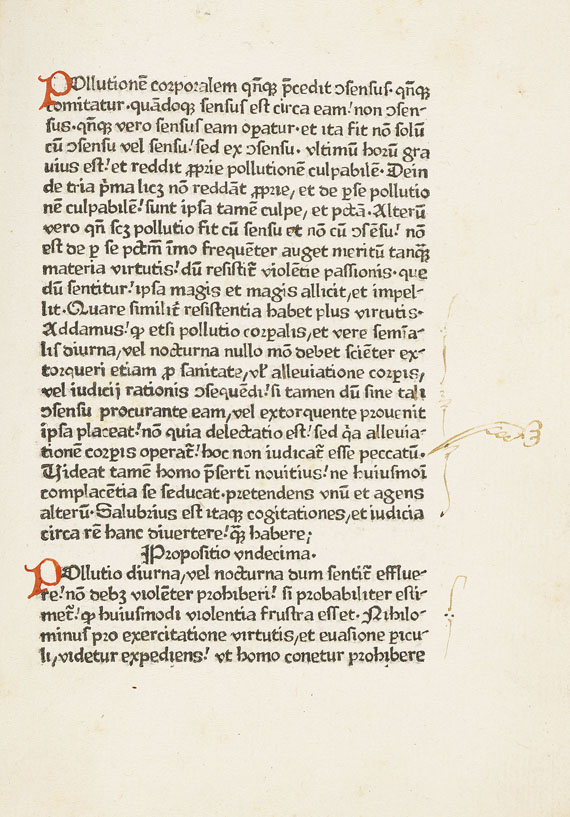 POllutionē corporalem qñꝗ p̄cedit ↄsensus· qñꝗ
comitatur·quādoꝗ sensus est circa eam! non ↄsen⸗
sus·qñꝗ vero sensus eam opatur·et ita fit nō solū
cū ↄsensu vel sensu! sed ex ↄsensu· vltimū horū gra
uius est! et reddit ꝓprie pollutionē culpabilē· Dein
de tria p̄ma licꝫ nō reddāt ꝓprie, et de ꝑse pollutio
nē culpabilē! sunt ipsa tamē culpe, et pctā· Alterū
vero qñ scꝫ pollutio fit cū sensu et nō cū ↄsēsu! nō
est de ꝑ se pctm̄ īmo frequēter auget meritū tanꝗ̄
materia virtutis! dū resistit̄ violētie passionis· que
dū sentitur! ipsa magis et magis allicit, et impel⸗
lit· Quare similit̄ resistentia habet plus virtutis·
Addamus! ꝙ etsi pollutio corꝑalis, et vere semīa⸗
lis diurna, vel nocturna nullo mō debet sciēter ex⸗
torqueri etiam ꝓ sanitate, vꝉ alleuiatione corꝑis,
vel iudicij rationis ↄsequēdi! si tamen dū sine tali
ↄsensu procurante eam, vel extorquente prouenit
ipsa placeat! nō quia delectatio est! sed q̇a alleuia⸗
tionē corꝑis operat̄! hoc non iudicat̄ esse peccatū·
Uideat tamē homo p̄serti nouitius! ne huiusmōi
complacētia se seducat· pretendens vnū et agens
alterū· Salubrius est itaꝗ cogitationes, et iudicia
circa rē hanc diuertere! ꝗ̄ habere;
Propositio vndecima·
POllutio diurna, vel nocturna dum sentit̄ efflue⸗
re! nō debꝫ violēter prohiberi! si probabiliter esti⸗
met̄! ꝙ huiusmodi violentia frustra esset· Nihilo⸗
minus pro exercitatione virtutis, et euasione ꝑicu⸗
li, videtur expediens! vt homo conetur prohibere